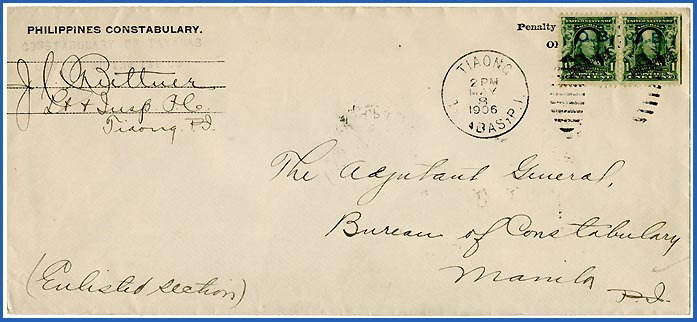 PHILIPPINES CONSTABULARY.
Lt & Insp. P.C.
Tiaong P.I.
Penalty
TIAONG
2 PM
MAY
8
1906
ABAS, P.I.
O.B.
1
1
The Adjutant General,
Bureau of Constabulary
Manila
P.I.
(Enlisted section)